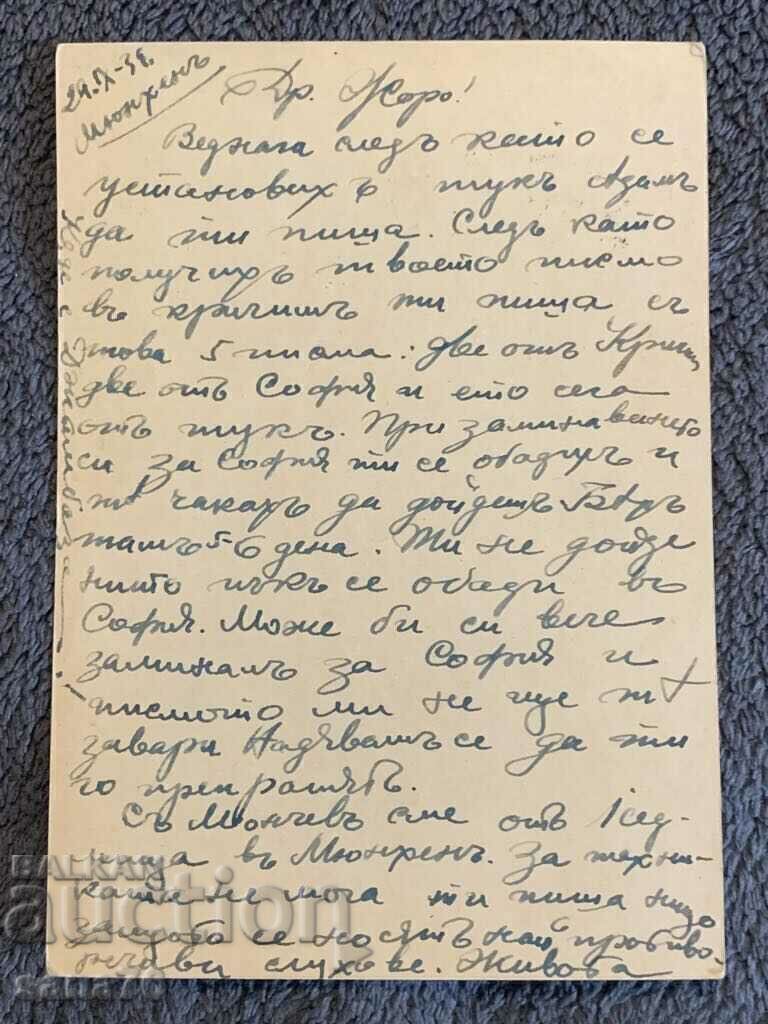 29.IX-38.
Мюнхенъ
Др. Жоро!
Веднага следъ като се
установихъ тукъ
да ти пиша. Следъ като
получихъ твоето писмо
въ кричимъ ти пиша съ
това 5 писма: две отъ
две отъ София и ето сега
отъ тукъ. При заминаването
си за София ти се обадихъ и
чакахъ да дойдешъ
тамъ 5-6 дена. Ти не дойде
нито пъкъ се обади въ
София. Може би си вече
заминалъ за София и
писмото ми не ще т+
завари Надявамъ се да ти
го препратятъ.
Съ Мончевъ сме отъ 1 сед-
мица въ Мюнхенъ. За техни-
ката не мога ти пиша нищо
защото се носятъ най противо-
речиви слухове. Живота
БАЛКАН
auction
sava78